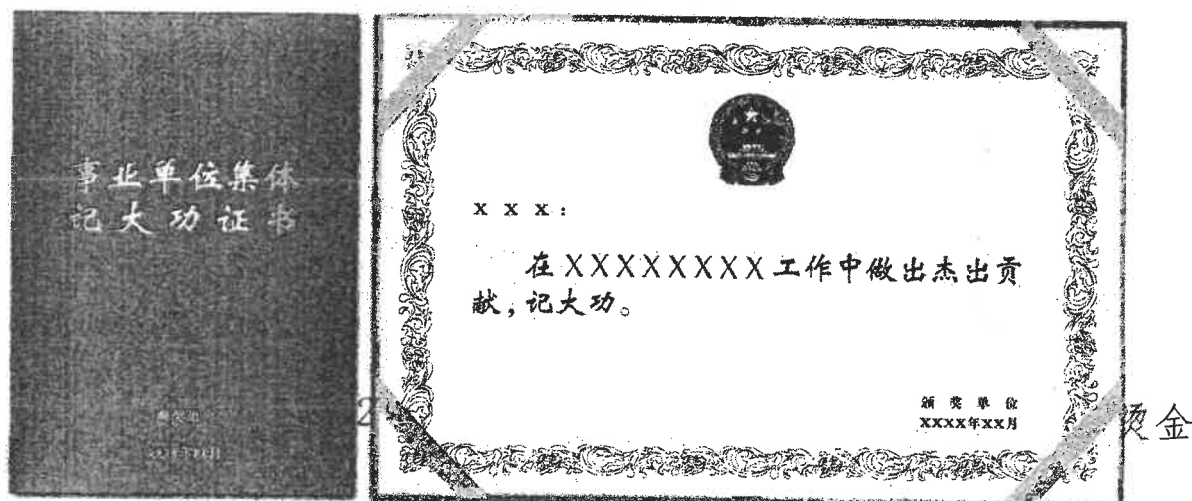 事业单位集体
记大功证书
X X X：
在XXXXXXXX工作中做出杰出贡
献，记大功。
颁奖单位
XXXX年XX月
2
烫金